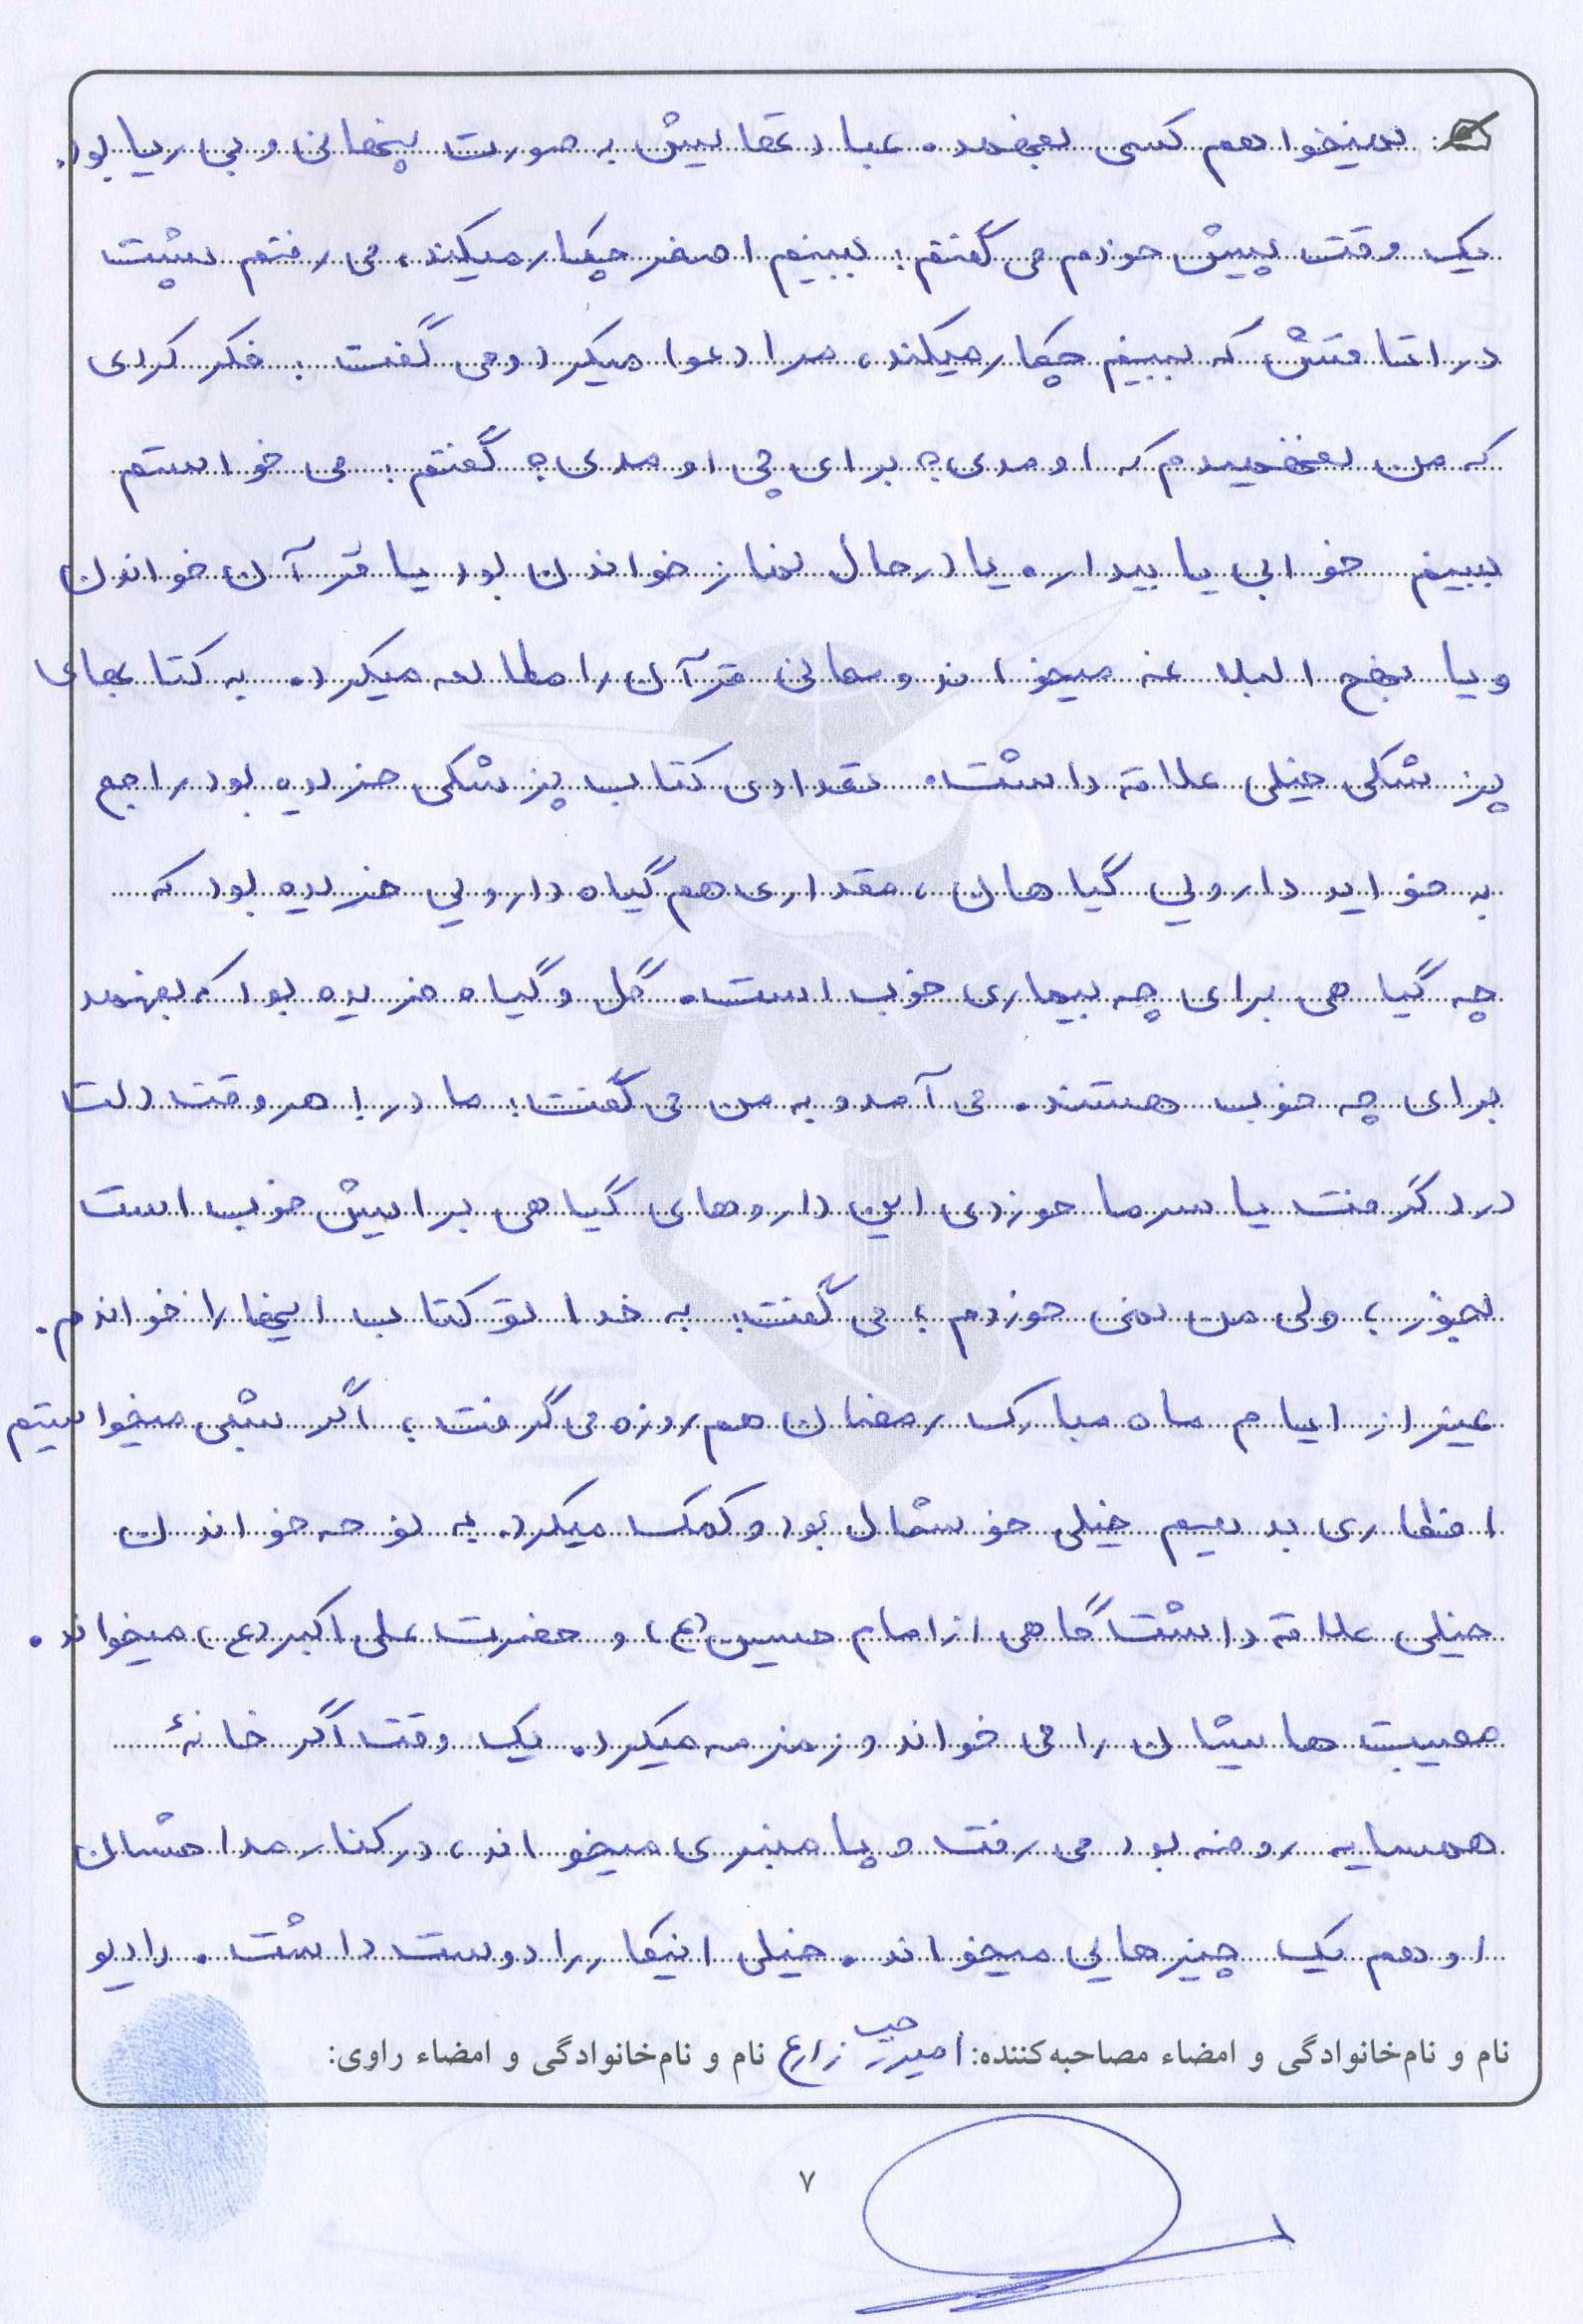 نمیخواهم کسی بفهمد. عبادتهایش به صورت پنهانی و بی ریا بود.
یک وقت پیش خودم می گفتم: ببینم اصغر چکار میکند، می رفتم پشت
در اتاقش که ببینم چکار میکند، مرا دعوا میکرد و می گفت: فکر کردی
که من نفهمیدم که اومدی؟ برای چی اومدی؟ گفتم: می خواستم
ببینم خوابی یا بیداره یا در حال نماز خواندن بود یا قرآن خواندن
و یا نهج البلاغه میخواند و معانی قرآن را مطالعه میکرد. به کتابهای
پزشکی خیلی علاقه داشت. تعدادی کتاب پزشکی خریده بود راجع
به فواید دارویی گیاهان، مقداری هم گیاه دارویی خریده بود که
چه گیاهی برای چه بیماری خوب است. گل و گیاه خریده بود که بفهمد
برای چه خوب هستند. می آمد و به من می گفت: مادر! هر وقت دلت
درد گرفت یا سرما خوردی این داروهای گیاهی برایش خوب است
بخور؛ ولی من نمی خوردم؛ می گفت: به خدا تو کتاب اینها را خواندم.
غیر از ایام ماه مبارک رمضان هم روزه می گرفت؛ اگر شبی میخواستیم
افطاری بدهیم خیلی خوشحال بود و کمک میکرد. به نوحه خواندن
خیلی علاقه داشت گاهی از امام حسین (ع) و حضرت علی اکبر (ع) میخواند.
مصیبت هایشان را می خواند و زمزمه میکرد. یک وقت اگر خانهٔ
همسایه روضه بود می رفت و پا منبری میخواند، در کنار مداحشان
او هم یک چیزهایی میخواند. خیلی اینکار را دوست داشت. رادیو
نام و نام‌خانوادگی و امضاء مصاحبه‌کننده: امیررجب زارع نام و نام‌خانوادگی و امضاء راوی:
۷